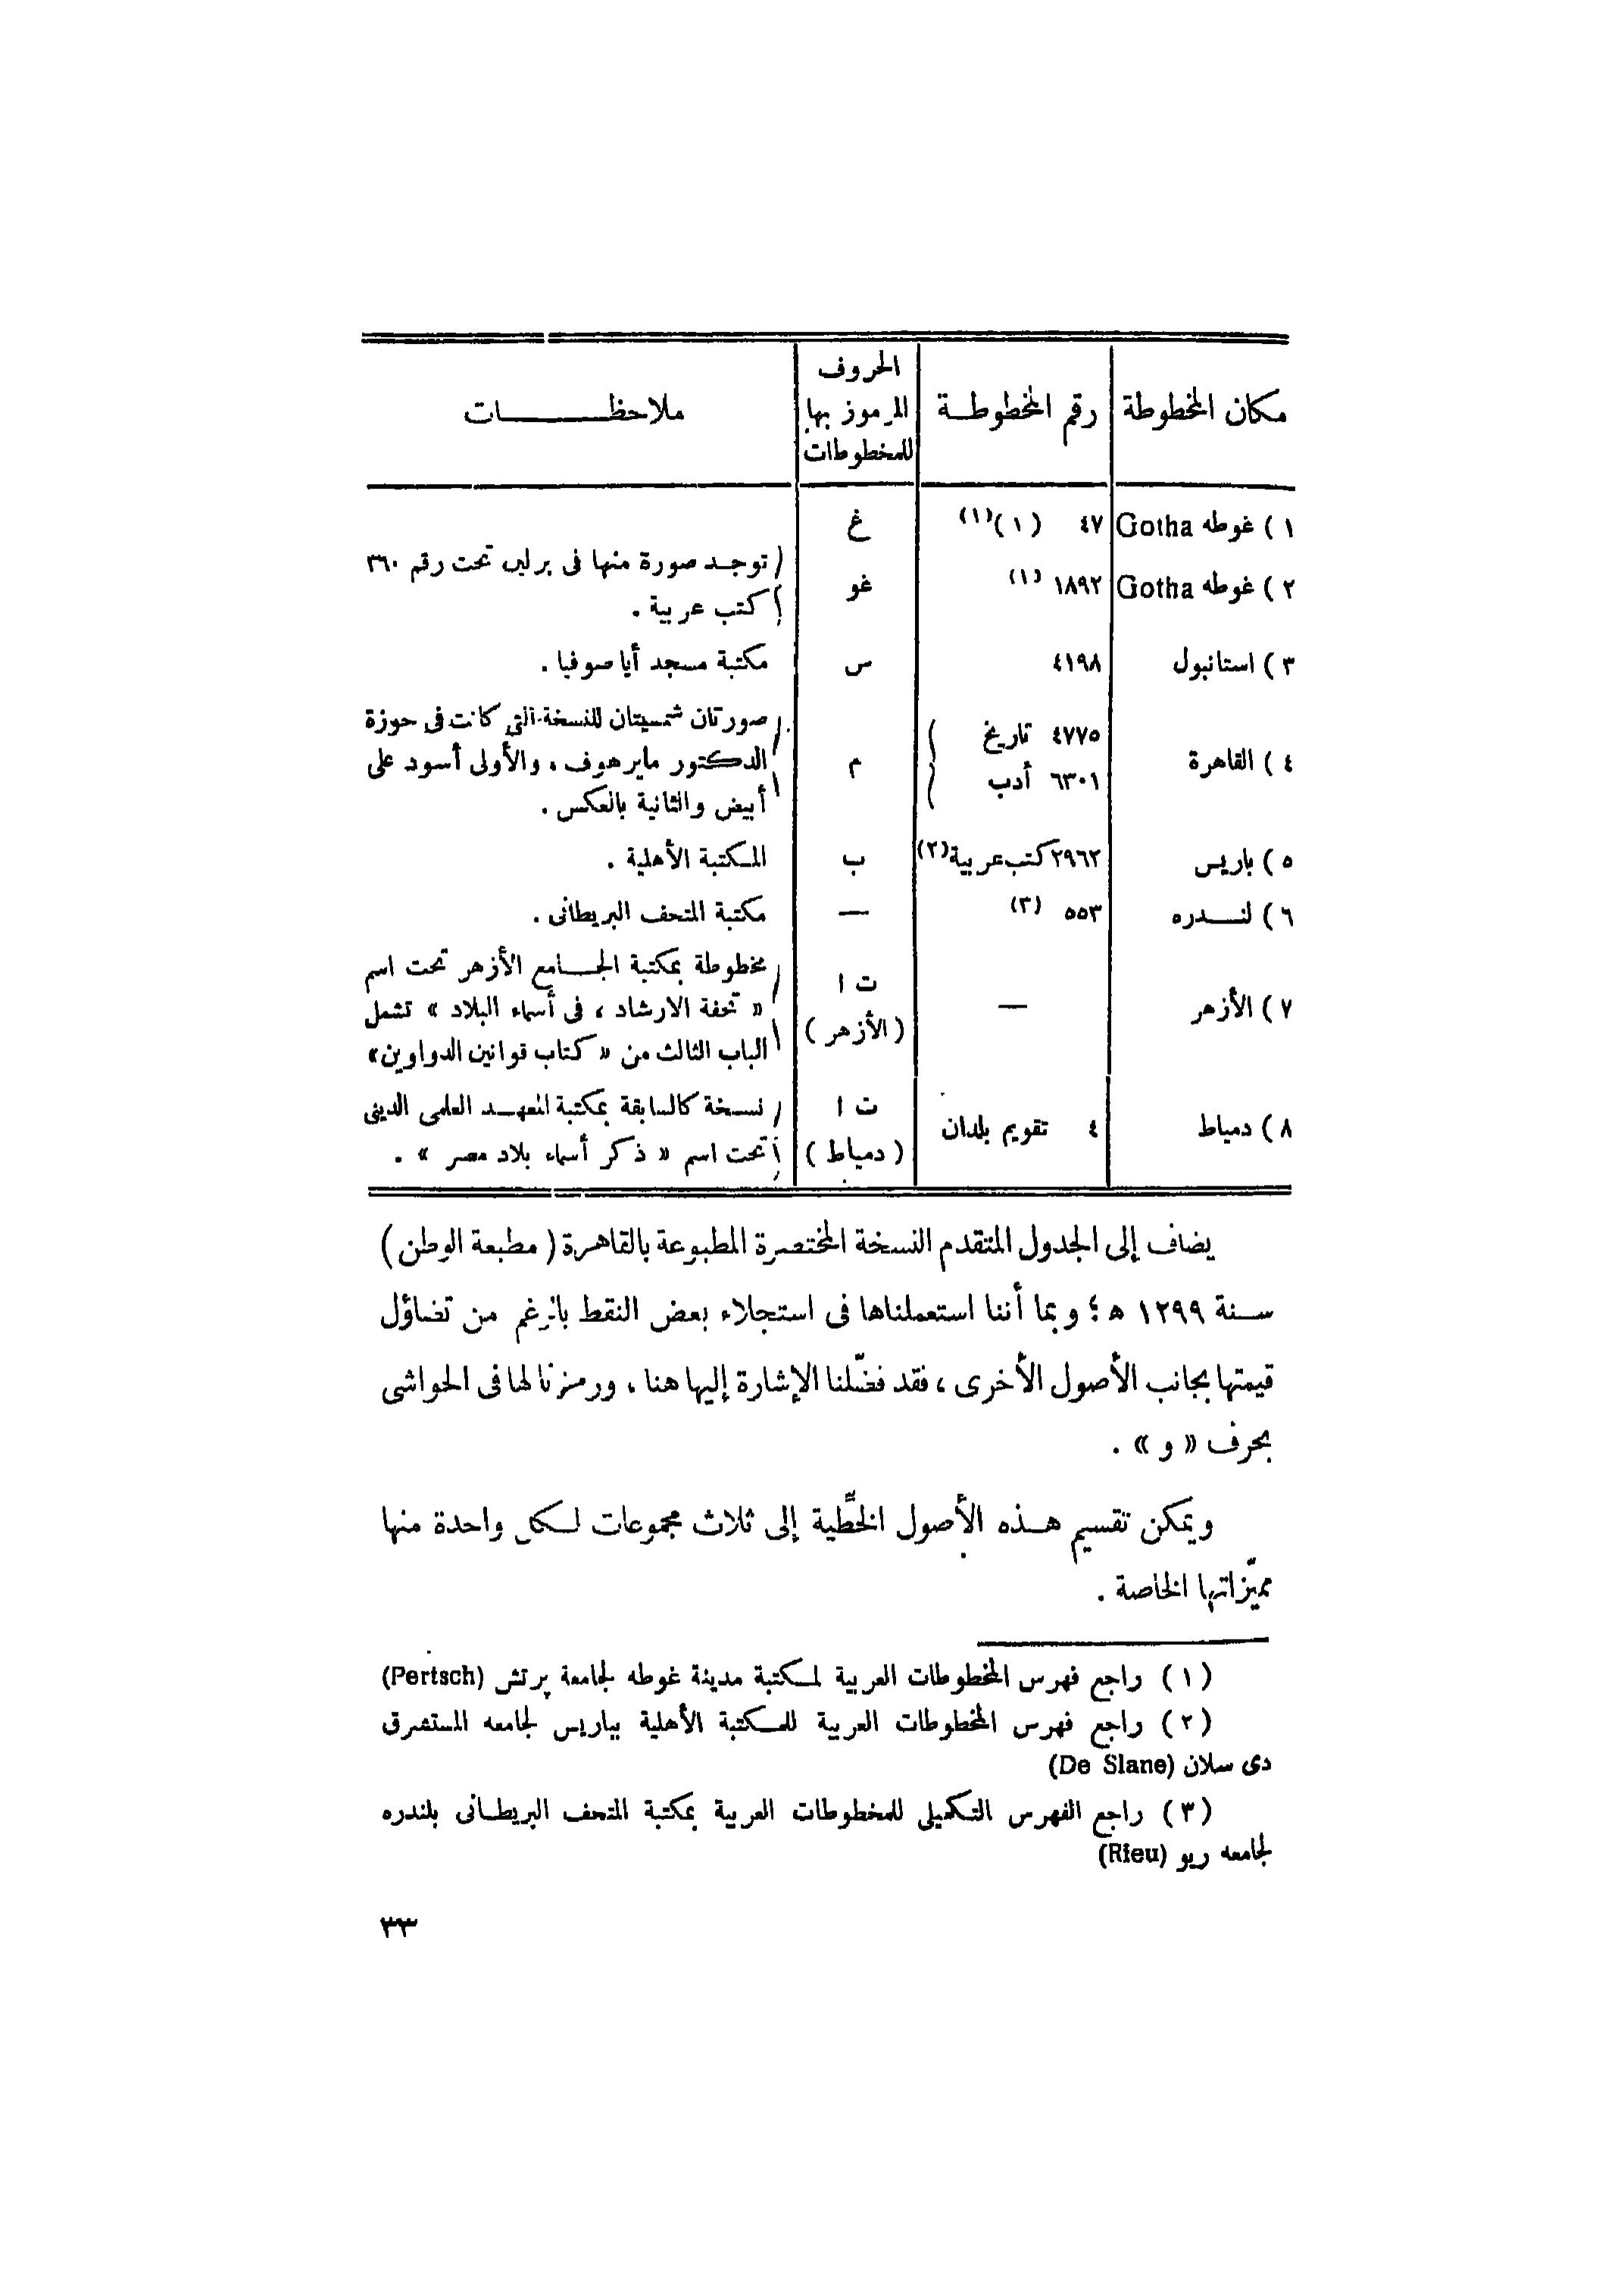 مكان المخطوطة
رقم المخطوطة
الحروف
المرموز بها
للمخطوطات
ملاحظات
١ ) غوطه Gotha
٤٧ ( ١ ) (١)
غ
٢ ) غوطه Gotha
١٨٩٢ (١)
غو
توجد صورة منها فى برلين تحت رقم ٣٦٠
كتب عربية .
٣ ) استانبول
٤١٩٨
س
مكتبة مسجد أيا صوفيا .
٤ ) القاهرة
٤٧٧٥ تاريخ
٦٣٠١ أدب
م
صورتان شمسيتان للنسخة التى كانت فى حوزة
الدكتور مايرهوف ، والأولى أسود على
أبيض والثانية بالعكس .
٥ ) باريس
٢٩٦٢ كتب عربية (٢)
ب
المكتبة الأهلية .
٦ ) لندره
٥٥٣ (٣)
—
مكتبة المتحف البريطانى .
٧ ) الأزهر
—
ت ا
( الأزهر )
مخطوطة بمكتبة الجامع الأزهر تحت اسم
« تحفة الارشاد ، فى أسماء البلاد » تشمل
الباب الثالث من « كتاب قوانين الدواوين »
٨ ) دمياط
٤ تقويم بلدان
ت ا
( دمياط )
نسخة كالسابقة بمكتبة المعهد العلمى الدينى
تحت اسم « ذكر أسماء بلاد مصر » .
يضاف إلى الجدول المتقدم النسخة المختصرة المطبوعة بالقاهرة ( مطبعة الوطن )
سنة ١٢٩٩ ه ؛ وبما أننا استعملناها فى استجلاء بعض النقط بالرغم من تضاؤل
قيمتها بجانب الأصول الأخرى ، فقد فضّلنا الإشارة إليها هنا ، ورمزنا لها فى الحواشى
بحرف « و » .
ويمكن تقسيم هذه الأصول الخطّية إلى ثلاث مجموعات لكل واحدة منها
مميّزاتها الخاصة .
( ١ ) راجع فهرس المخطوطات العربية لمكتبة مدينة غوطه لجامعة پرتش (Pertsch)
( ٢ ) راجع فهرس المخطوطات العربية للمكتبة الأهلية بباريس لجامعه المستشرق
دى سلان (De Slane)
( ٣ ) راجع الفهرس التكميلى للمخطوطات العربية بمكتبة المتحف البريطانى بلندره
لجامعه ريو (Rieu)
٣٣